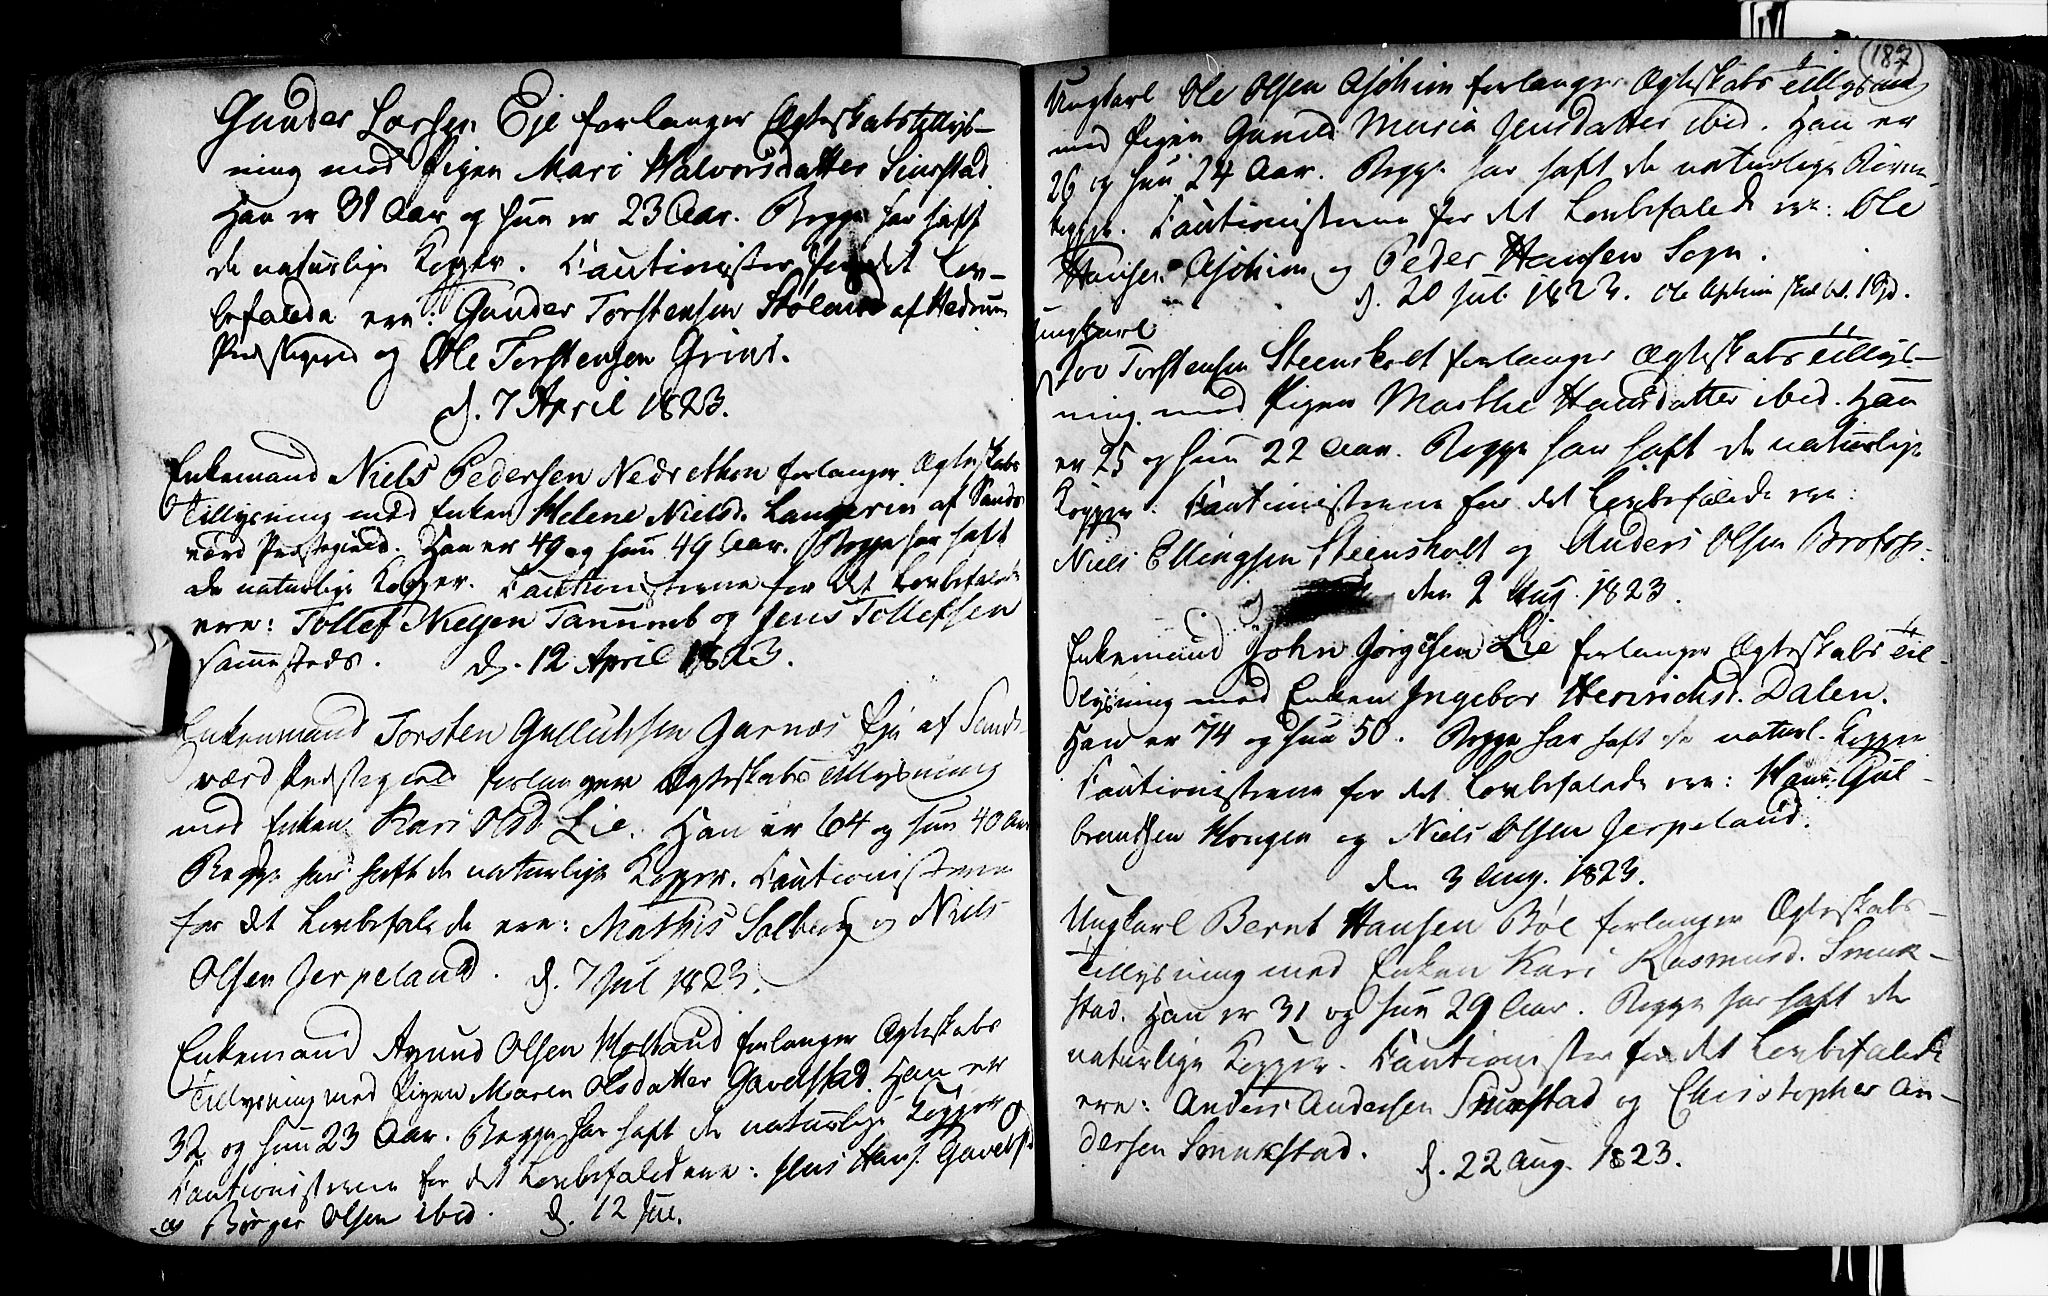 Gunder Larsen Eje forlanger Ægteskabstillys-
ning med Pigen Mari Halvorsdatter
Han er 31 Aar og hun er 23 Aar. Begge har haft
de naturlige Kopper. Cautionister for det Lov-
befalede ere: Gunder Torstensen Støland af Hedrum
Præstegield og Ole Torstensen Grini.
d. 7 April 1823.
Enkemand Niels Pedersen Nedre forlanger Ægteskabs
Tillysning med Enken Helene Nielsd. Langerin af Sande-
værd Præstegield. Han er 49 og hun 49 Aar. Begge har haft
de naturlige Kopper. Cautionisterne for det Lovbefalede
ere: Tollef Nielsen Tanum og Jens Tollefsen
sammesteds. d. 12 April 1823.
Enkemand Torsten Gulliksen Jarnæs Eje af Sands-
værd Præstegield forlanger Ægteskabs Tillysning
med Enken Kari Olsd. Lie. Han er 64 og hun 40 Aar
Begge har haft de naturlige Kopper. Cautionisterne
for det Lovbefalede ere: Mathis Solberg og Niels
Olsen Jerpeland. d. 7 Jul 1823.
Enkemand Amund Olsen Holtand forlanger Ægteskabs
Tillysning med Pigen Maren Olsdatter Gavelstad. Han er
32 og hun 23 Aar. Begge har haft de naturlige Kopper
Cautionisterne for det Lovbefalede ere: Jens Hans. Gavelst.
og Børger Olsen ibid. d. 12 Jul.
187
Ungkarl Ole Olsen Aschim forlanger Ægteskabs tillysning
med Pigen Gunild Maria Jensdatter ibid. Han er
26 og hun 24 Aar. Begge har haft de naturlige Børne-
kopper. Cautionisterne for det Lovbefalede ere: Ole
Hansen Aschim og Peder Hansen Sogn.
d. 20 Jul. 1823. Ole Aschim skal bet. 1 Spd.
Ungkarl
Joo Torstensen Steensholt forlanger Ægteskabs tillys-
ning med Pigen Marthe Hansdatter ibid. Han
er 25 og hun 22 Aar. Begge har haft de naturlige
Kopper. Cautionisterne for det Lovbefalede ere:
Niels Ellingsen Steensholt og Anders Olsen
den 2 Aug. 1823.
Enkemand John Jørgensen Lie forlanger Ægteskabs Til-
lysning med Enken Ingebor Henrichsd. Dalen.
Han er 74 og hun 50. Begge har haft de naturl. Kopper
Cautionisterne for det Lovbefalede ere: Hans Gul-
brandsen Hougen og Niels Olsen Jerpeland.
den 3 Aug. 1823.
Ungkarl Bernt Hansen Bøe forlanger Ægteskabs-
Tillysning med Enken Kari Rasmusd. Smuk-
stad. Han er 31 og hun 29 Aar. Begge har haft de
naturlige Kopper. Cautionister for det Lovbefalede
ere: Anders Andersen Smukstad og Christopher An-
dersen Smukstad. d. 22 Aug. 1823.